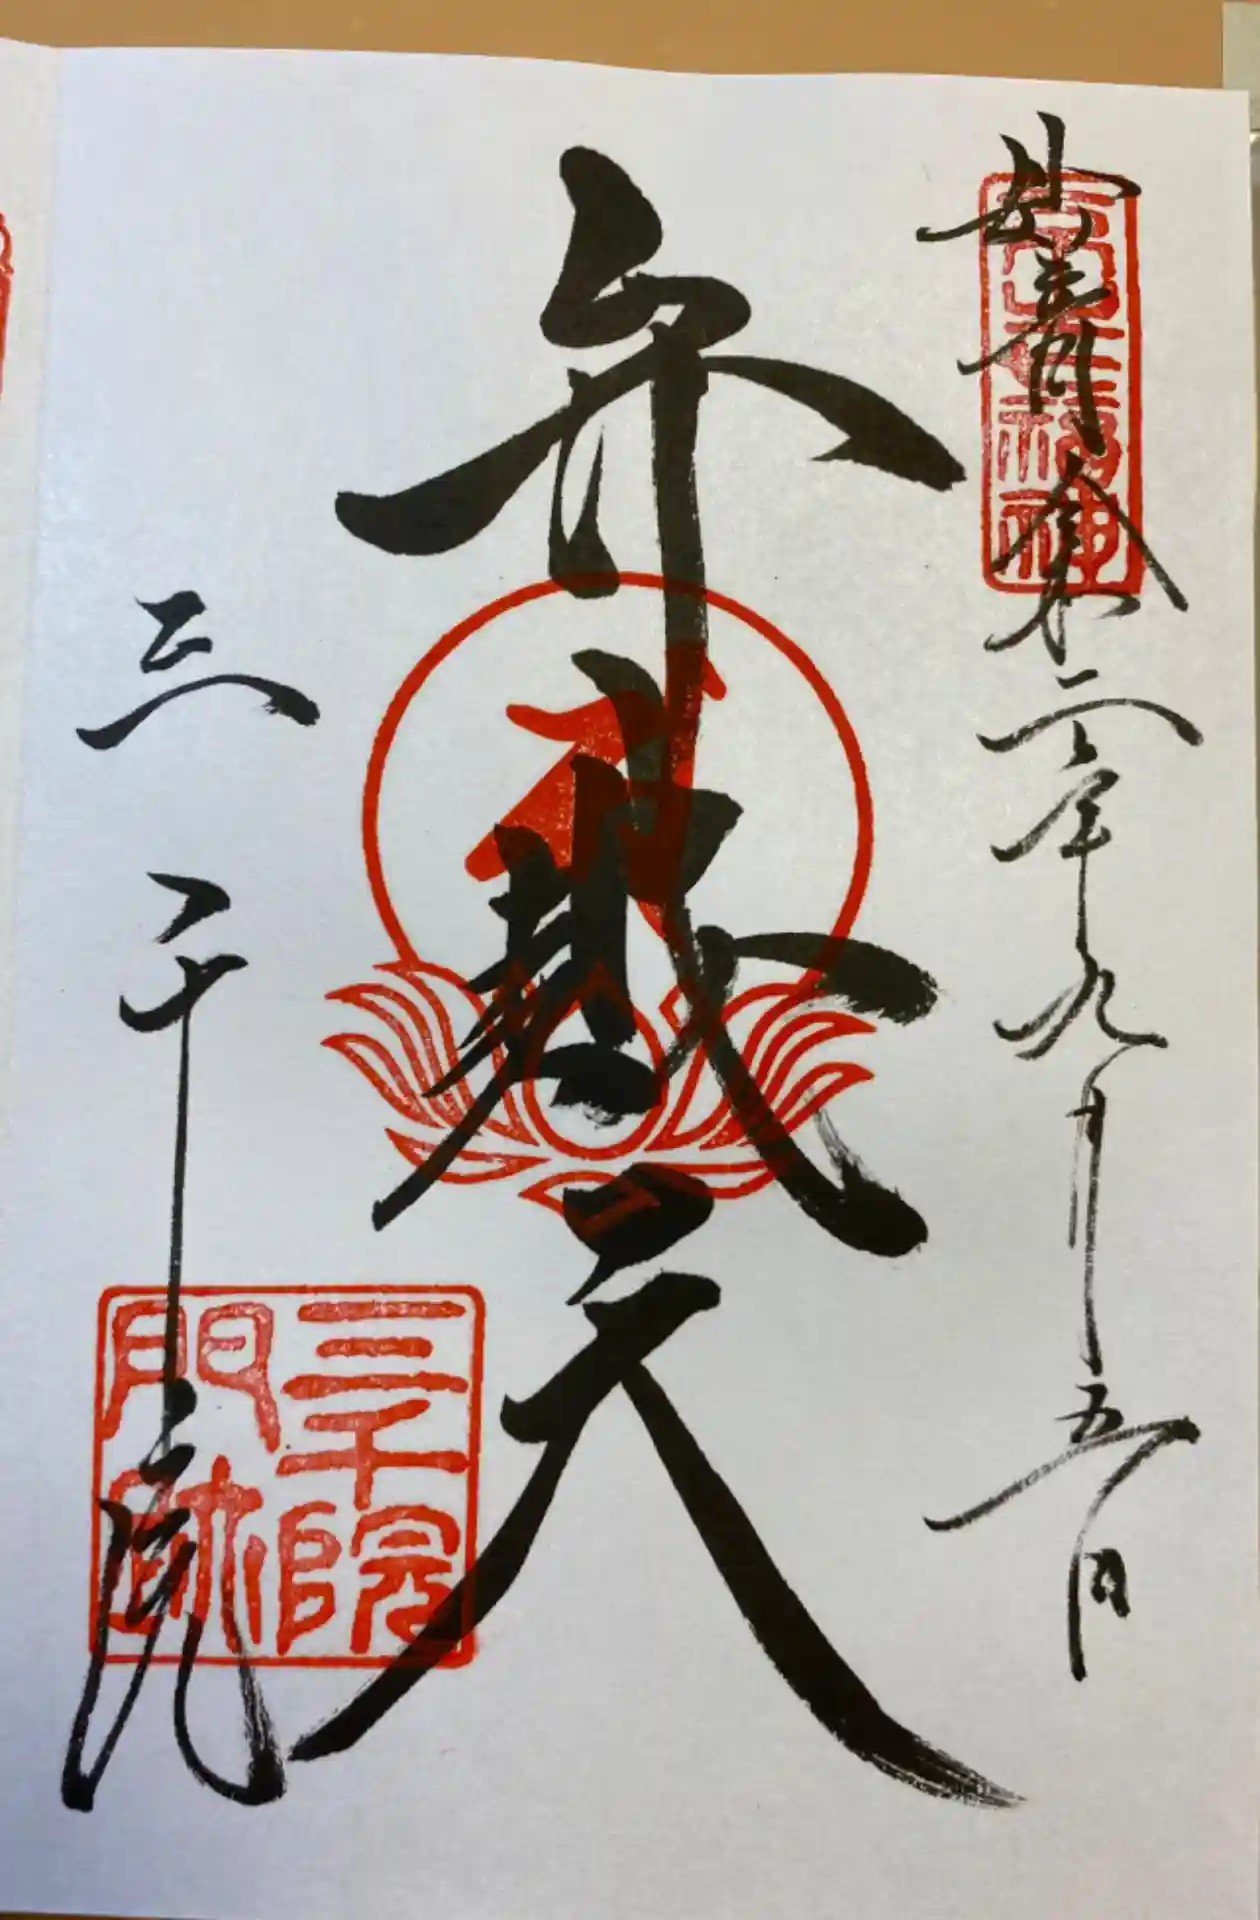 七福神
令和二年九月五日
弁財天
三千院
三千院
門跡